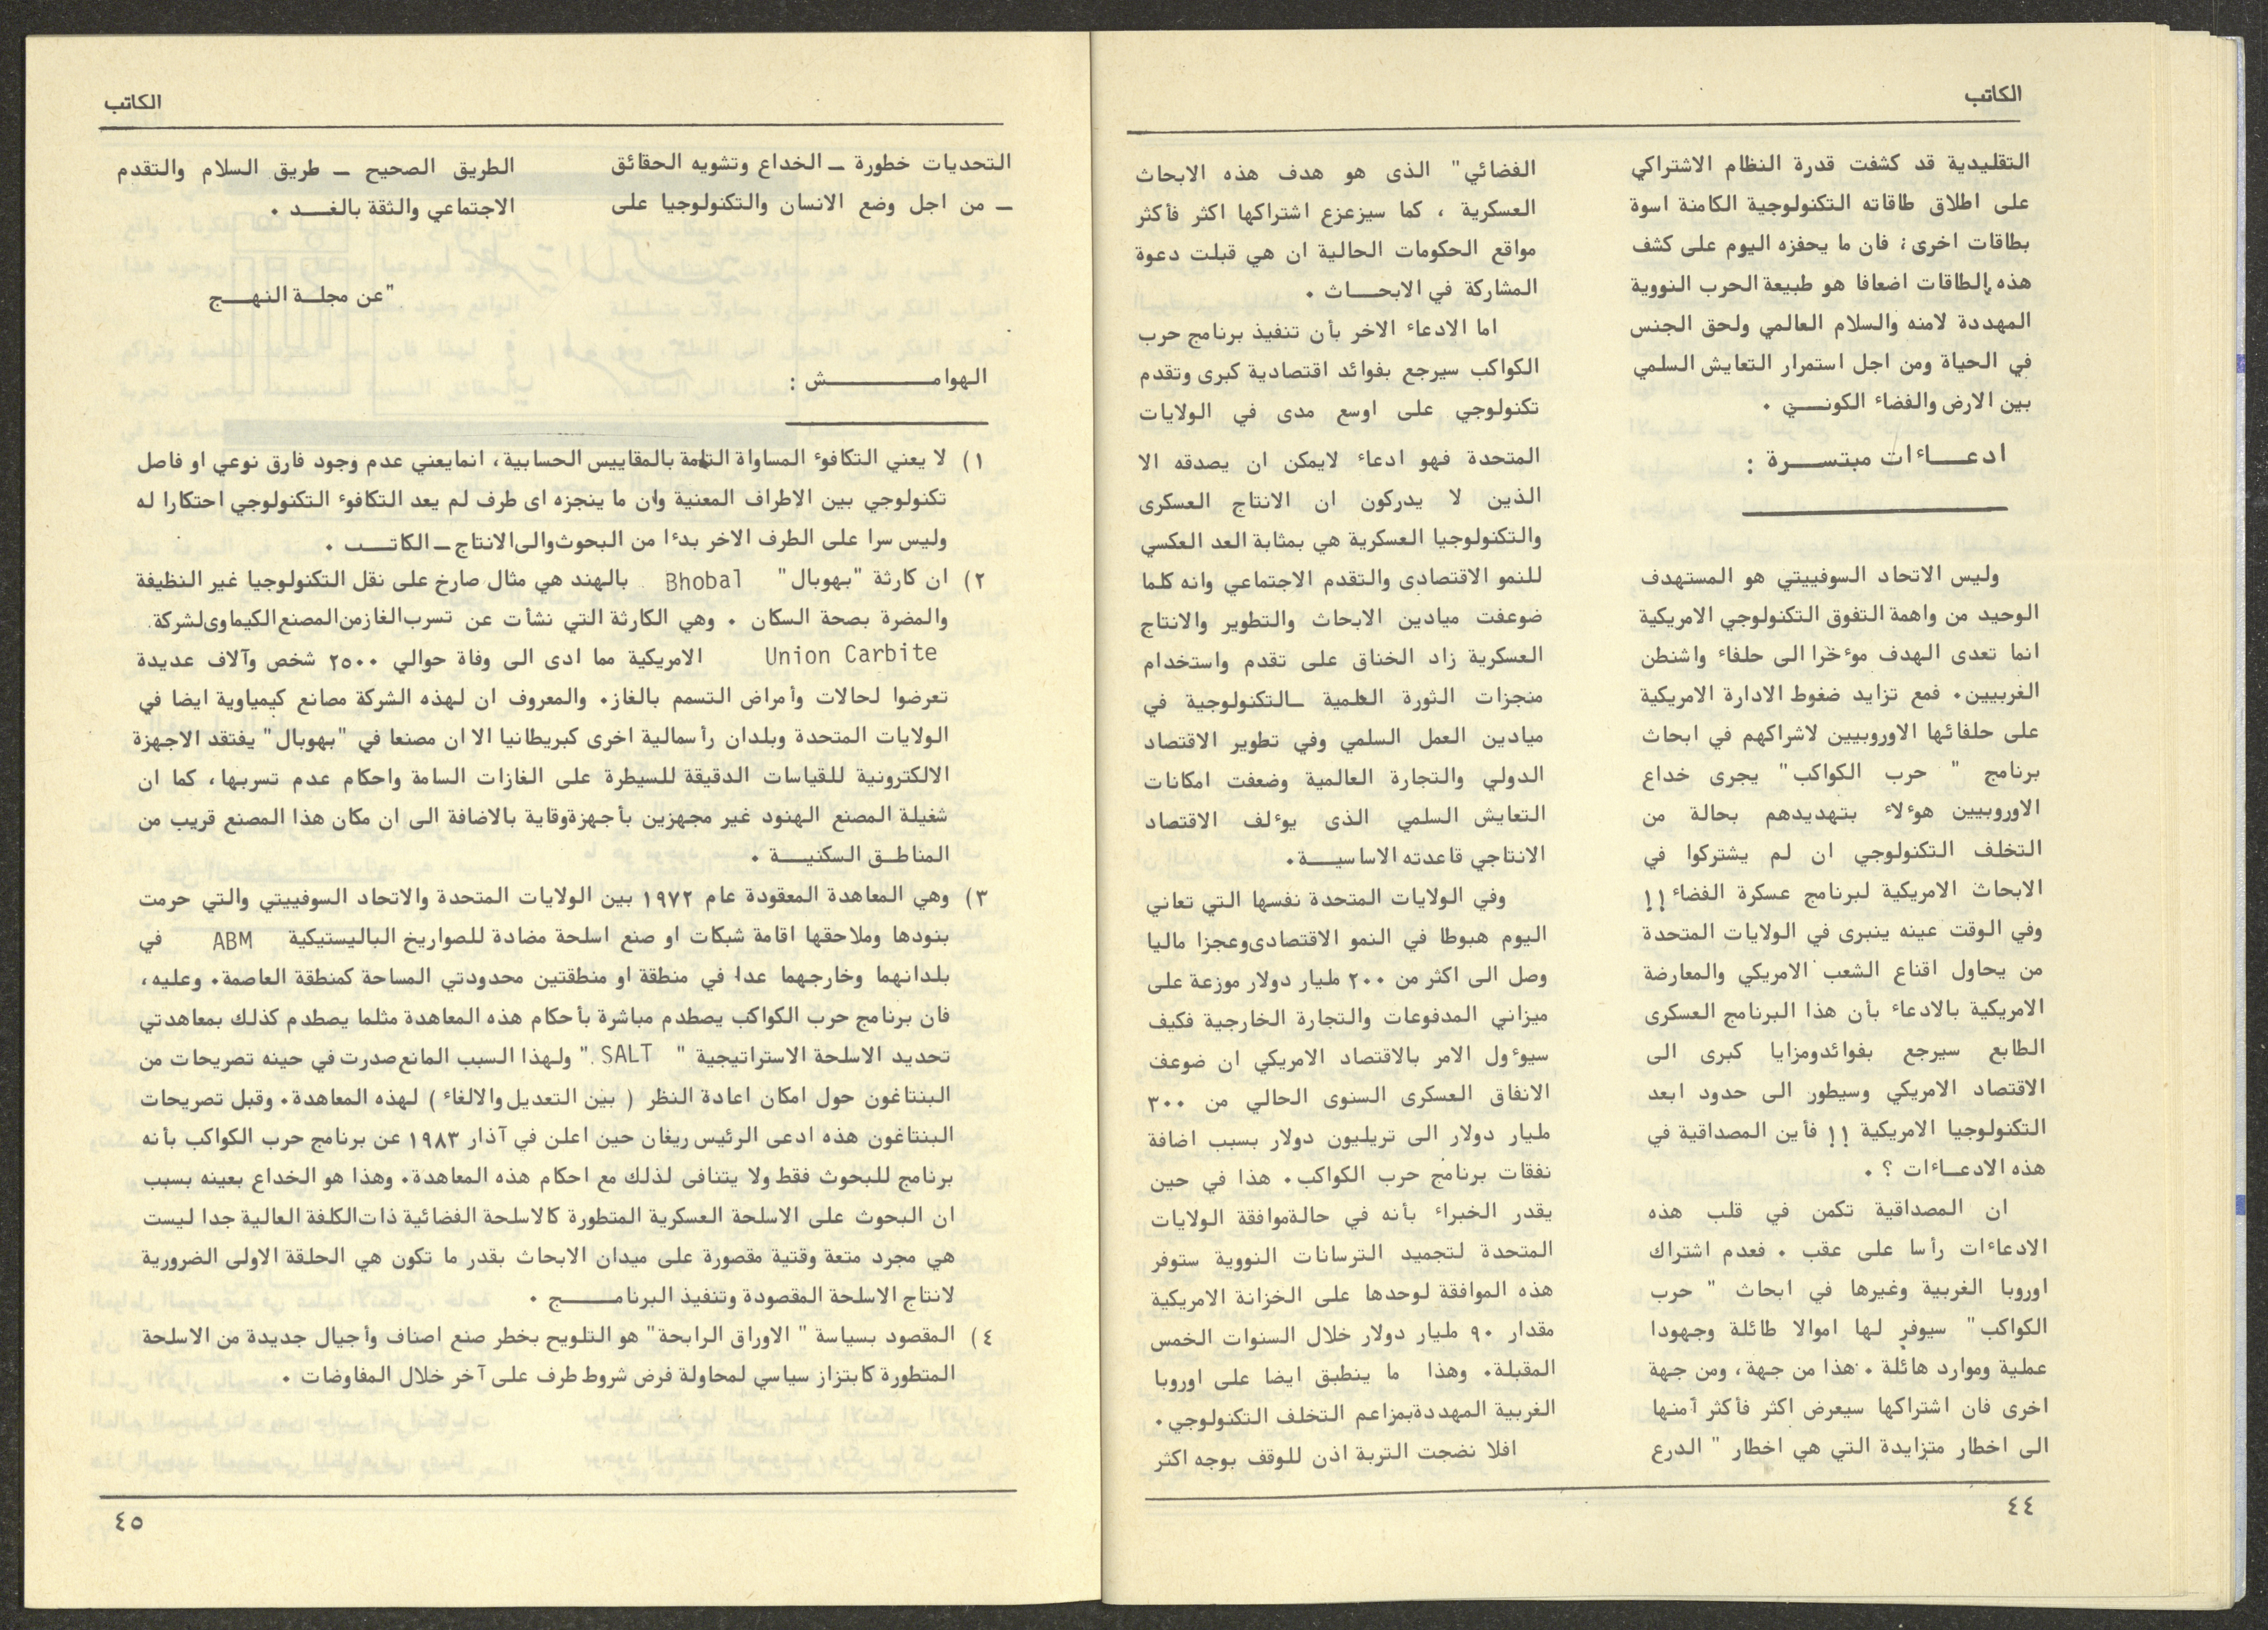 الكاتب
التقليدية قد كشفت قدرة النظام الاشتراكي
على اطلاق طاقاته التكنولوجية الكامنة اسوة
بطاقات اخرى؛ فان ما يحفزه اليوم على كشف
هذه الطاقات اضعافا هو طبيعة الحرب النووية
المهددة لامنه والسلام العالمي ولحق الجنس
في الحياة ومن اجل استمرار التعايش السلمي
بين الارض والفضاء الكونـــي ٠
ادعـــاءات مبتســـرة :
وليس الاتحاد السوفييتي هو المستهدف
الوحيد من واهمة التفوق التكنولوجي الامريكية
انما تعدى الهدف موءخرا الى حلفاء واشنطن
الغربيين٠ فمع تزايد ضغوط الادارة الامريكية
على حلفائها الاوروبيين لاشراكهم في ابحاث
برنامج " حرب الكواكب" يجرى خداع
الاوروبيين هوءلاء بتهديدهم بحالة من
التخلف التكنولوجي ان لم يشتركوا في
الابحاث الامريكية لبرنامج عسكرة الفضاء !!
وفي الوقت عينه ينبرى في الولايات المتحدة
من يحاول اقناع الشعب الامريكي والمعارضة
الامريكية بالادعاء بأن هذا البرنامج العسكرى
الطابع سيرجع بفوائدومزايا كبرى الى
الاقتصاد الامريكي وسيطور الى حدود ابعد
التكنولوجيا الامريكية !! فأين المصداقية في
هذه الادعــاءات ؟ ٠
ان المصداقية تكمن في قلب هذه
الادعاءات رأسا على عقب ٠ فعدم اشتراك
اوروبا الغربية وغيرها في ابحاث " حرب
الكواكب" سيوفر لها اموالا طائلة وجهودا
عملية وموارد هائلة ٠ هذا من جهة، ومن جهة
اخرى فان اشتراكها سيعرض اكثر فأكثر أمنها
الى اخطار متزايدة التي هي اخطار " الدرع
الفضائي" الذى هو هدف هذه الابحاث
العسكرية ، كما سيزعزع اشتراكها اكثر فأكثر
مواقع الحكومات الحالية ان هي قبلت دعوة
المشاركة في الابحـــاث ٠
اما الادعاء الاخر بأن تنفيذ برنامج حرب
الكواكب سيرجع بفوائد اقتصادية كبرى وتقدم
تكنولوجي على اوسع مدى في الولايات
المتحدة فهو ادعاء لايمكن ان يصدقه الا
الذين لا يدركون ان الانتاج العسكرى
والتكنولوجيا العسكرية هي بمثابة العد العكسي
للنمو الاقتصادى والتقدم الاجتماعي وانه كلما
ضوعفت ميادين الابحاث والتطوير والانتاج
العسكرية زاد الخناق على تقدم واستخدام
منجزات الثورة العلمية ـالتكنولوجية في
ميادين العمل السلمي وفي تطوير الاقتصاد
الدولي والتجارة العالمية وضعفت امكانات
التعايش السلمي الذى يوءلف الاقتصاد
الانتاجي قاعدته الاساسيـــة٠
وفي الولايات المتحدة نفسها التي تعاني
اليوم هبوطا في النمو الاقتصادىوعجزا ماليا
وصل الى اكثر من ٢٠٠ مليار دولار موزعة على
ميزاني المدفوعات والتجارة الخارجية فكيف
سيوءول الامر بالاقتصاد الامريكي ان ضوعف
الانفاق العسكرى السنوى الحالي من ٣٠٠
مليار دولار الى تريليون دولار بسبب اضافة
نفقات برنامج حرب الكواكب٠ هذا في حين
يقدر الخبراء بأنه في حالةموافقة الولايات
المتحدة لتجميد الترسانات النووية ستوفر
هذه الموافقة لوحدها على الخزانة الامريكية
مقدار ٩٠ مليار دولار خلال السنوات الخمس
المقبلة٠ وهذا ما ينطبق ايضا على اوروبا
الغربية المهددةبمزاعم التخلف التكنولوجي٠
افلا نضجت التربة اذن للوقف بوجه اكثر
٤٤
الكاتب
التحديات خطورة ـ الخداع وتشويه الحقائق
ـ من اجل وضع الانسان والتكنولوجيا على
الطريق الصحيح ـ طريق السلام والتقدم
الاجتماعي والثقة بالغـــد ٠
"عن مجلــة النهـــج
الهوامــــــــش :
١) لا يعني التكافوء المساواة التامة بالمقاييس الحسابية، انمايعني عدم وجود فارق نوعي او فاصل
تكنولوجي بين الاطراف المعنية وان ما ينجزه اى طرف لم يعد التكافوء التكنولوجي احتكارا له
وليس سرا على الطرف الاخر بدءا من البحوث والى الانتاج ـ الكاتـــب ٠
٢) ان كارثة "بهوبال" Bhobal بالهند هي مثال صارخ على نقل التكنولوجيا غير النظيفة
والمضرة بصحة السكان ٠ وهي الكارثة التي نشأت عن تسرب الغاز من المصنع الكيماوى لشركة
Union Carbite الامريكية مما ادى الى وفاة حوالي ٢٥٠٠ شخص وآلاف عديدة
تعرضوا لحالات وأمراض التسمم بالغاز٠ والمعروف ان لهذه الشركة مصانع كيمياوية ايضا في
الولايات المتحدة وبلدان رأسمالية اخرى كبريطانيا الا ان مصنعا في "بهوبال" يفتقد الاجهزة
الالكترونية للقياسات الدقيقة للسيطرة على الغازات السامة واحكام عدم تسربها، كما ان
شغيلة المصنع الهنود غير مجهزين بأجهزةوقاية بالاضافة الى ان مكان هذا المصنع قريب من
المناطـق السكنيـــة ٠
٣) وهي المعاهدة المعقودة عام ١٩٧٢ بين الولايات المتحدة والاتحاد السوفييتي والتي حرمت
بنودها وملاحقها اقامة شبكات او صنع اسلحة مضادة للصواريخ الباليستيكية ABM في
بلدانهما وخارجهما عدا في منطقة او منطقتين محدودتي المساحة كمنطقة العاصمة٠ وعليه،
فان برنامج حرب الكواكب يصطدم مباشرة بأحكام هذه المعاهدة مثلما يصطدم كذلك بمعاهدتي
تحديد الاسلحة الاستراتيجية " SALT " ولهذا السبب المانع صدرت في حينه تصريحات من
البنتاغون حول امكان اعادة النظر ( بين التعديل والالغاء ) لهذه المعاهدة٠ وقبل تصريحات
البنتاغون هذه ادعى الرئيس ريغان حين اعلن في آذار ١٩٨٣ عن برنامج حرب الكواكب بأنه
برنامج للبحوث فقط ولا يتنافى لذلك مع احكام هذه المعاهدة٠ وهذا هو الخداع بعينه بسبب
ان البحوث على الاسلحة العسكرية المتطورة كالاسلحة الفضائية ذات الكلفة العالية جدا ليست
هي مجرد متعة وقتية مقصورة على ميدان الابحاث بقدر ما تكون هي الحلقة الاولى الضرورية
لانتاج الاسلحة المقصودة وتنفيذ البرنامـــــج ٠
٤) المقصود بسياسة " الاوراق الرابحة" هو التلويح بخطر صنع اصناف وأجيال جديدة من الاسلحة
المتطورة كابتزاز سياسي لمحاولة فرض شروط طرف على آخر خلال المفاوضات ٠
٤٥